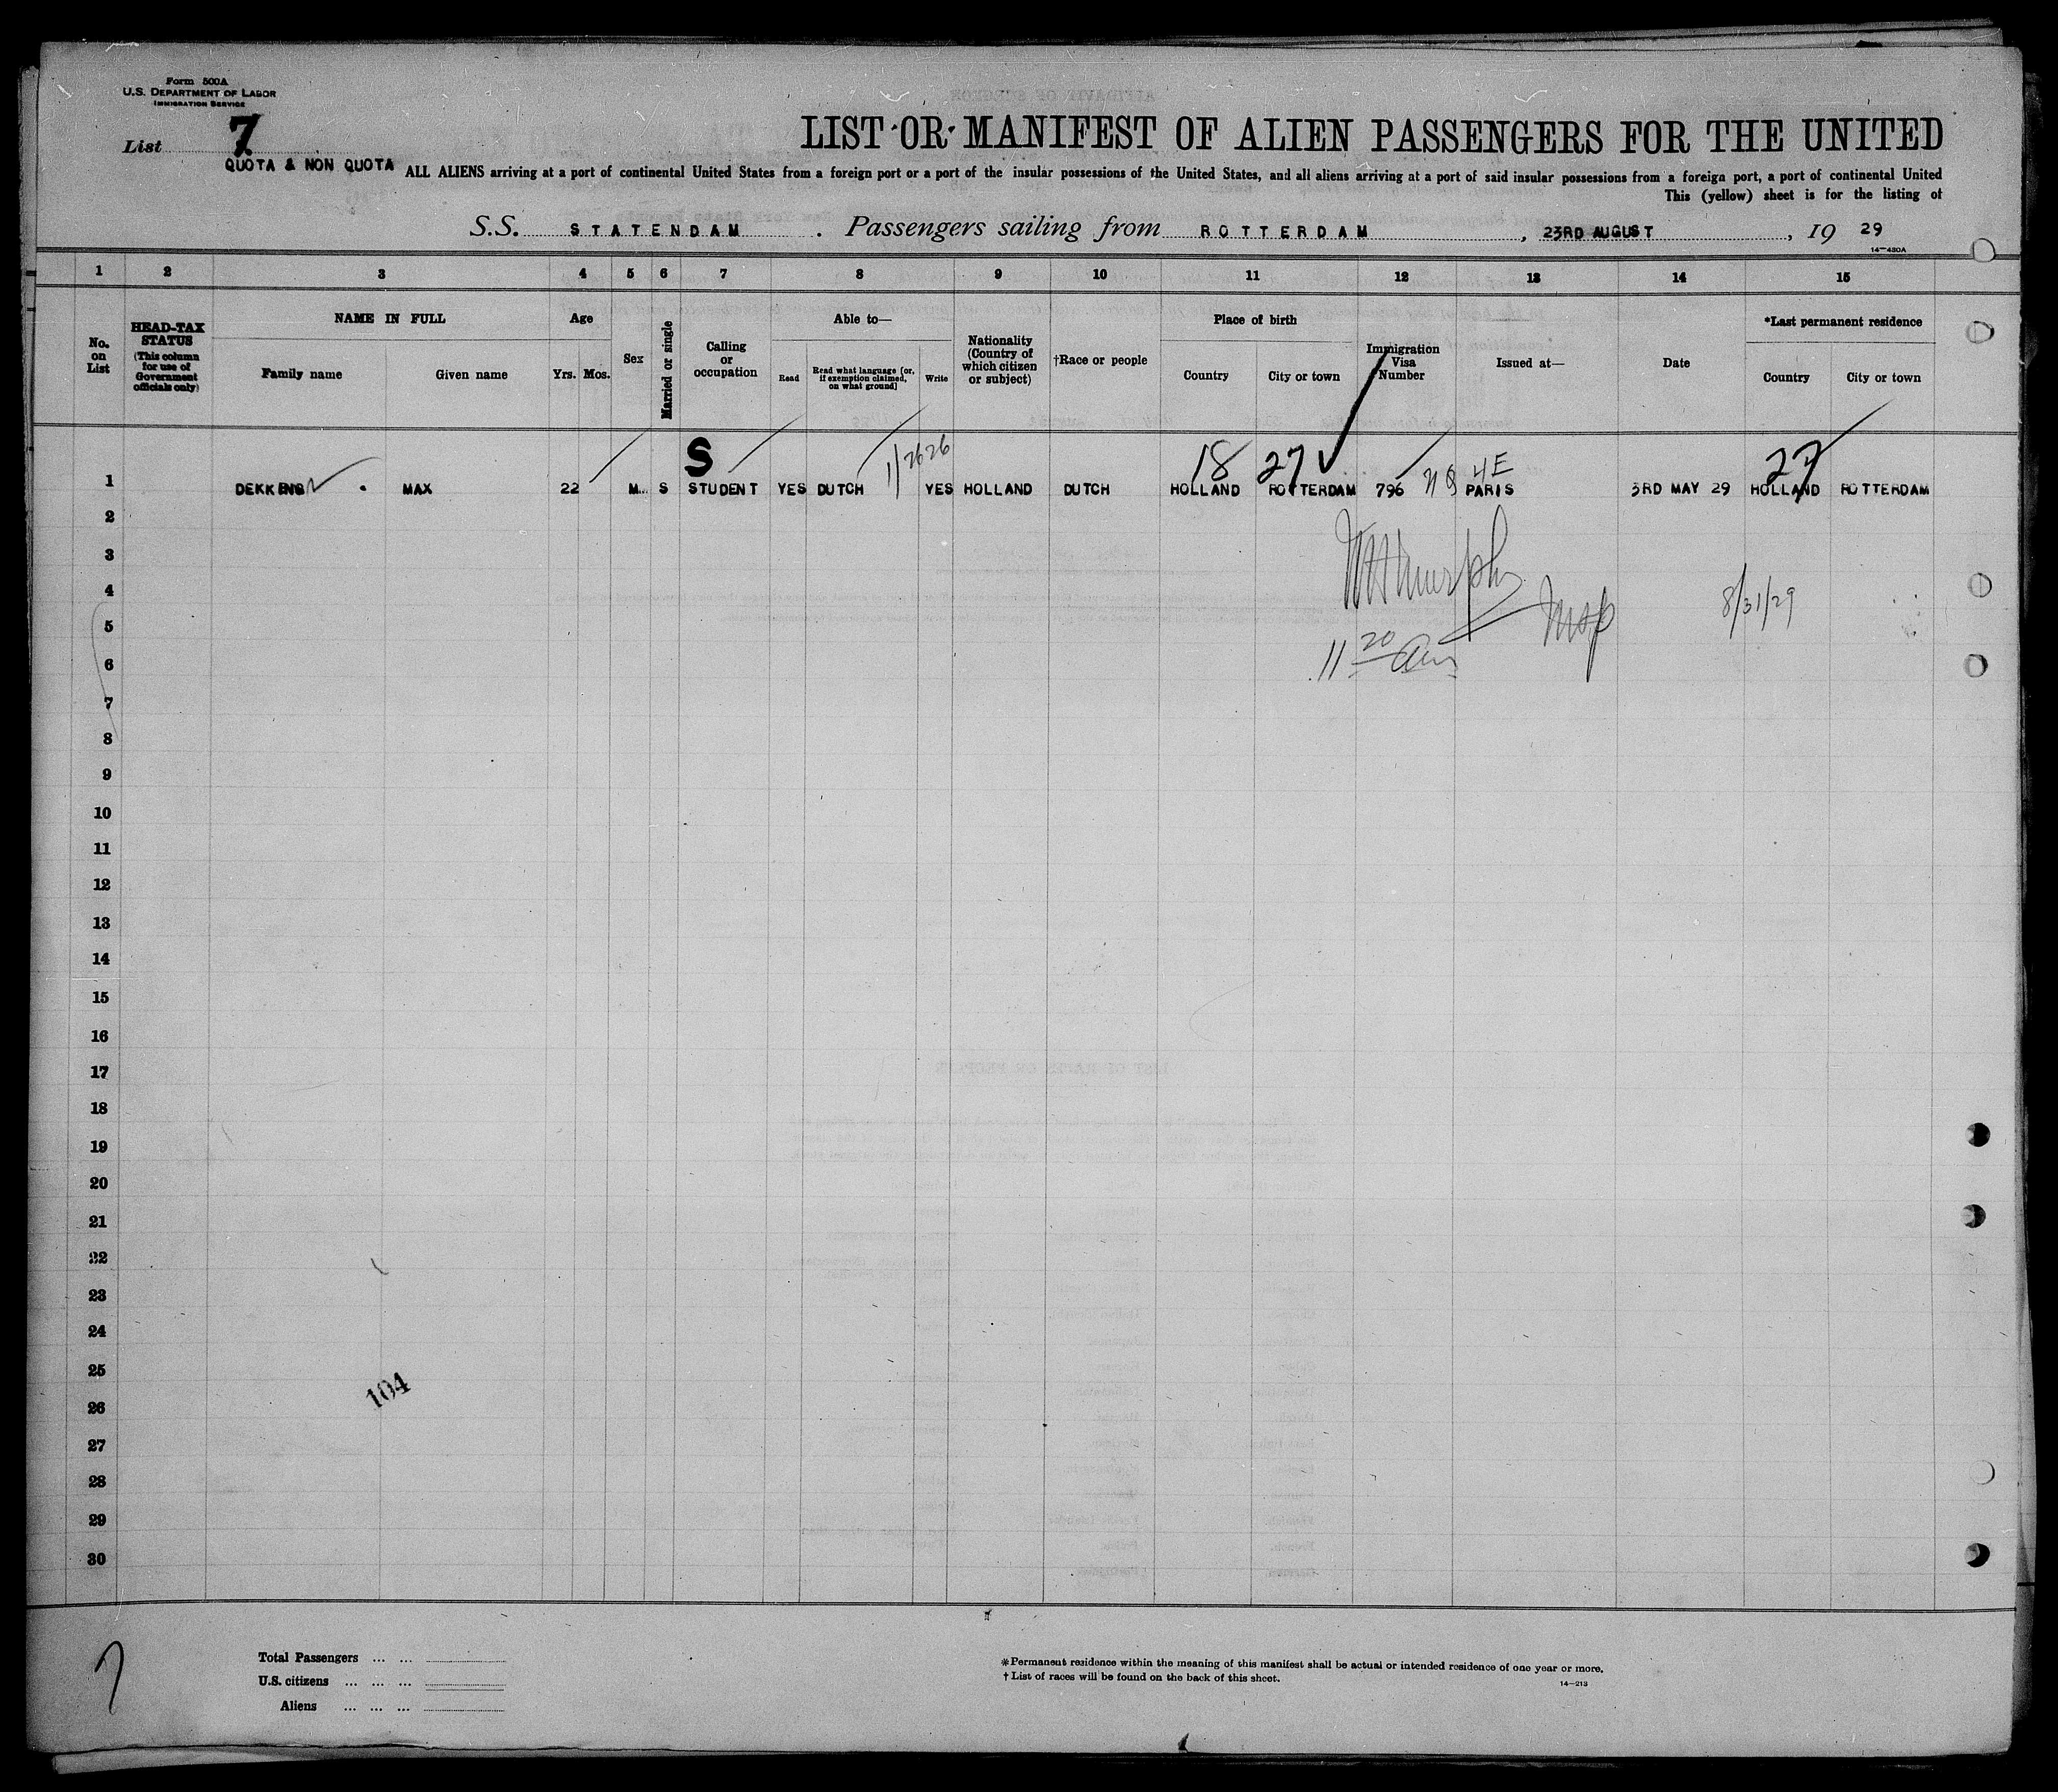 Form 500A
U.S. DEPARTMENT OF LABOR
IMMIGRATION SERVICE
List 7
LIST OR MANIFEST OF ALIEN PASSENGERS FOR THE UNITED
QUOTA & NON QUOTA ALL ALIENS arriving at a port of continental United States from a foreign port or a port of the insular possessions of the United States, and all aliens arriving at a port of said insular possessions from a foreign port, a port of continental United
This (yellow) sheet is for the listing of
S.S. STATENDAM . Passengers sailing from ROTTERDAM , 23RD AUGUST , 19 29
14-430A
1 2 3 4 5 6 7 8 9 10 11 12 13 14 15
No. on List
HEAD-TAX STATUS (This column for use of Government officials only)
NAME IN FULL
Family name Given name
Age
Yrs. Mos.
Sex
Married or single
Calling or occupation
Able to—
Read Read what language [or, if exemption claimed, on what ground] Write
Nationality (Country of which citizen or subject)
†Race or people
Place of birth
Country City or town
Immigration Visa Number
Issued at—
Date
*Last permanent residence
Country City or town
S 1/2626 18 27 4E 27
1 DEKKENS MAX 22 M. S STUDENT YES DUTCH YES HOLLAND DUTCH HOLLAND ROTTERDAM 796 PARIS 3RD MAY 29 HOLLAND ROTTERDAM
2
3
Murphy
4
Insp 8/31/29
5
6
11 20 am
7
8
9
10
11
12
13
14
15
16
17
18
19
20
21
22
23
24
25
104
26
27
28
29
30
7
Total Passengers ... ...
U.S. citizens ... ... ...
Aliens ... ... ...
*Permanent residence within the meaning of this manifest shall be actual or intended residence of one year or more.
†List of races will be found on the back of this sheet.
14-213